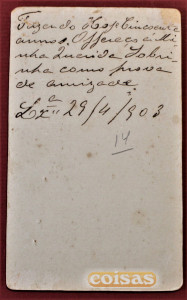 Fazendo Hoje Cincoenta
annos, Offereço a Mi
nha Querida Sobri
nha como prova
de amizade
Lxª 29/4/903
14
coisas